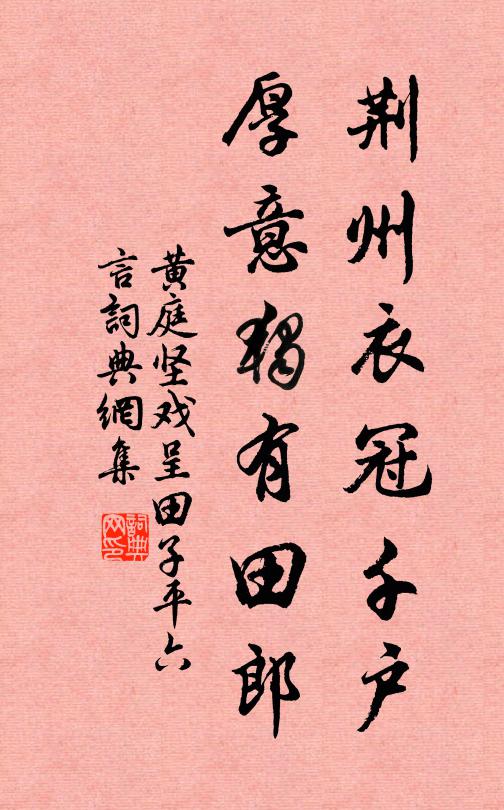 荆州衣冠千户
厚意獨有田郎
黄庭坚戏呈田子平六
言詞典網集
詞典网印